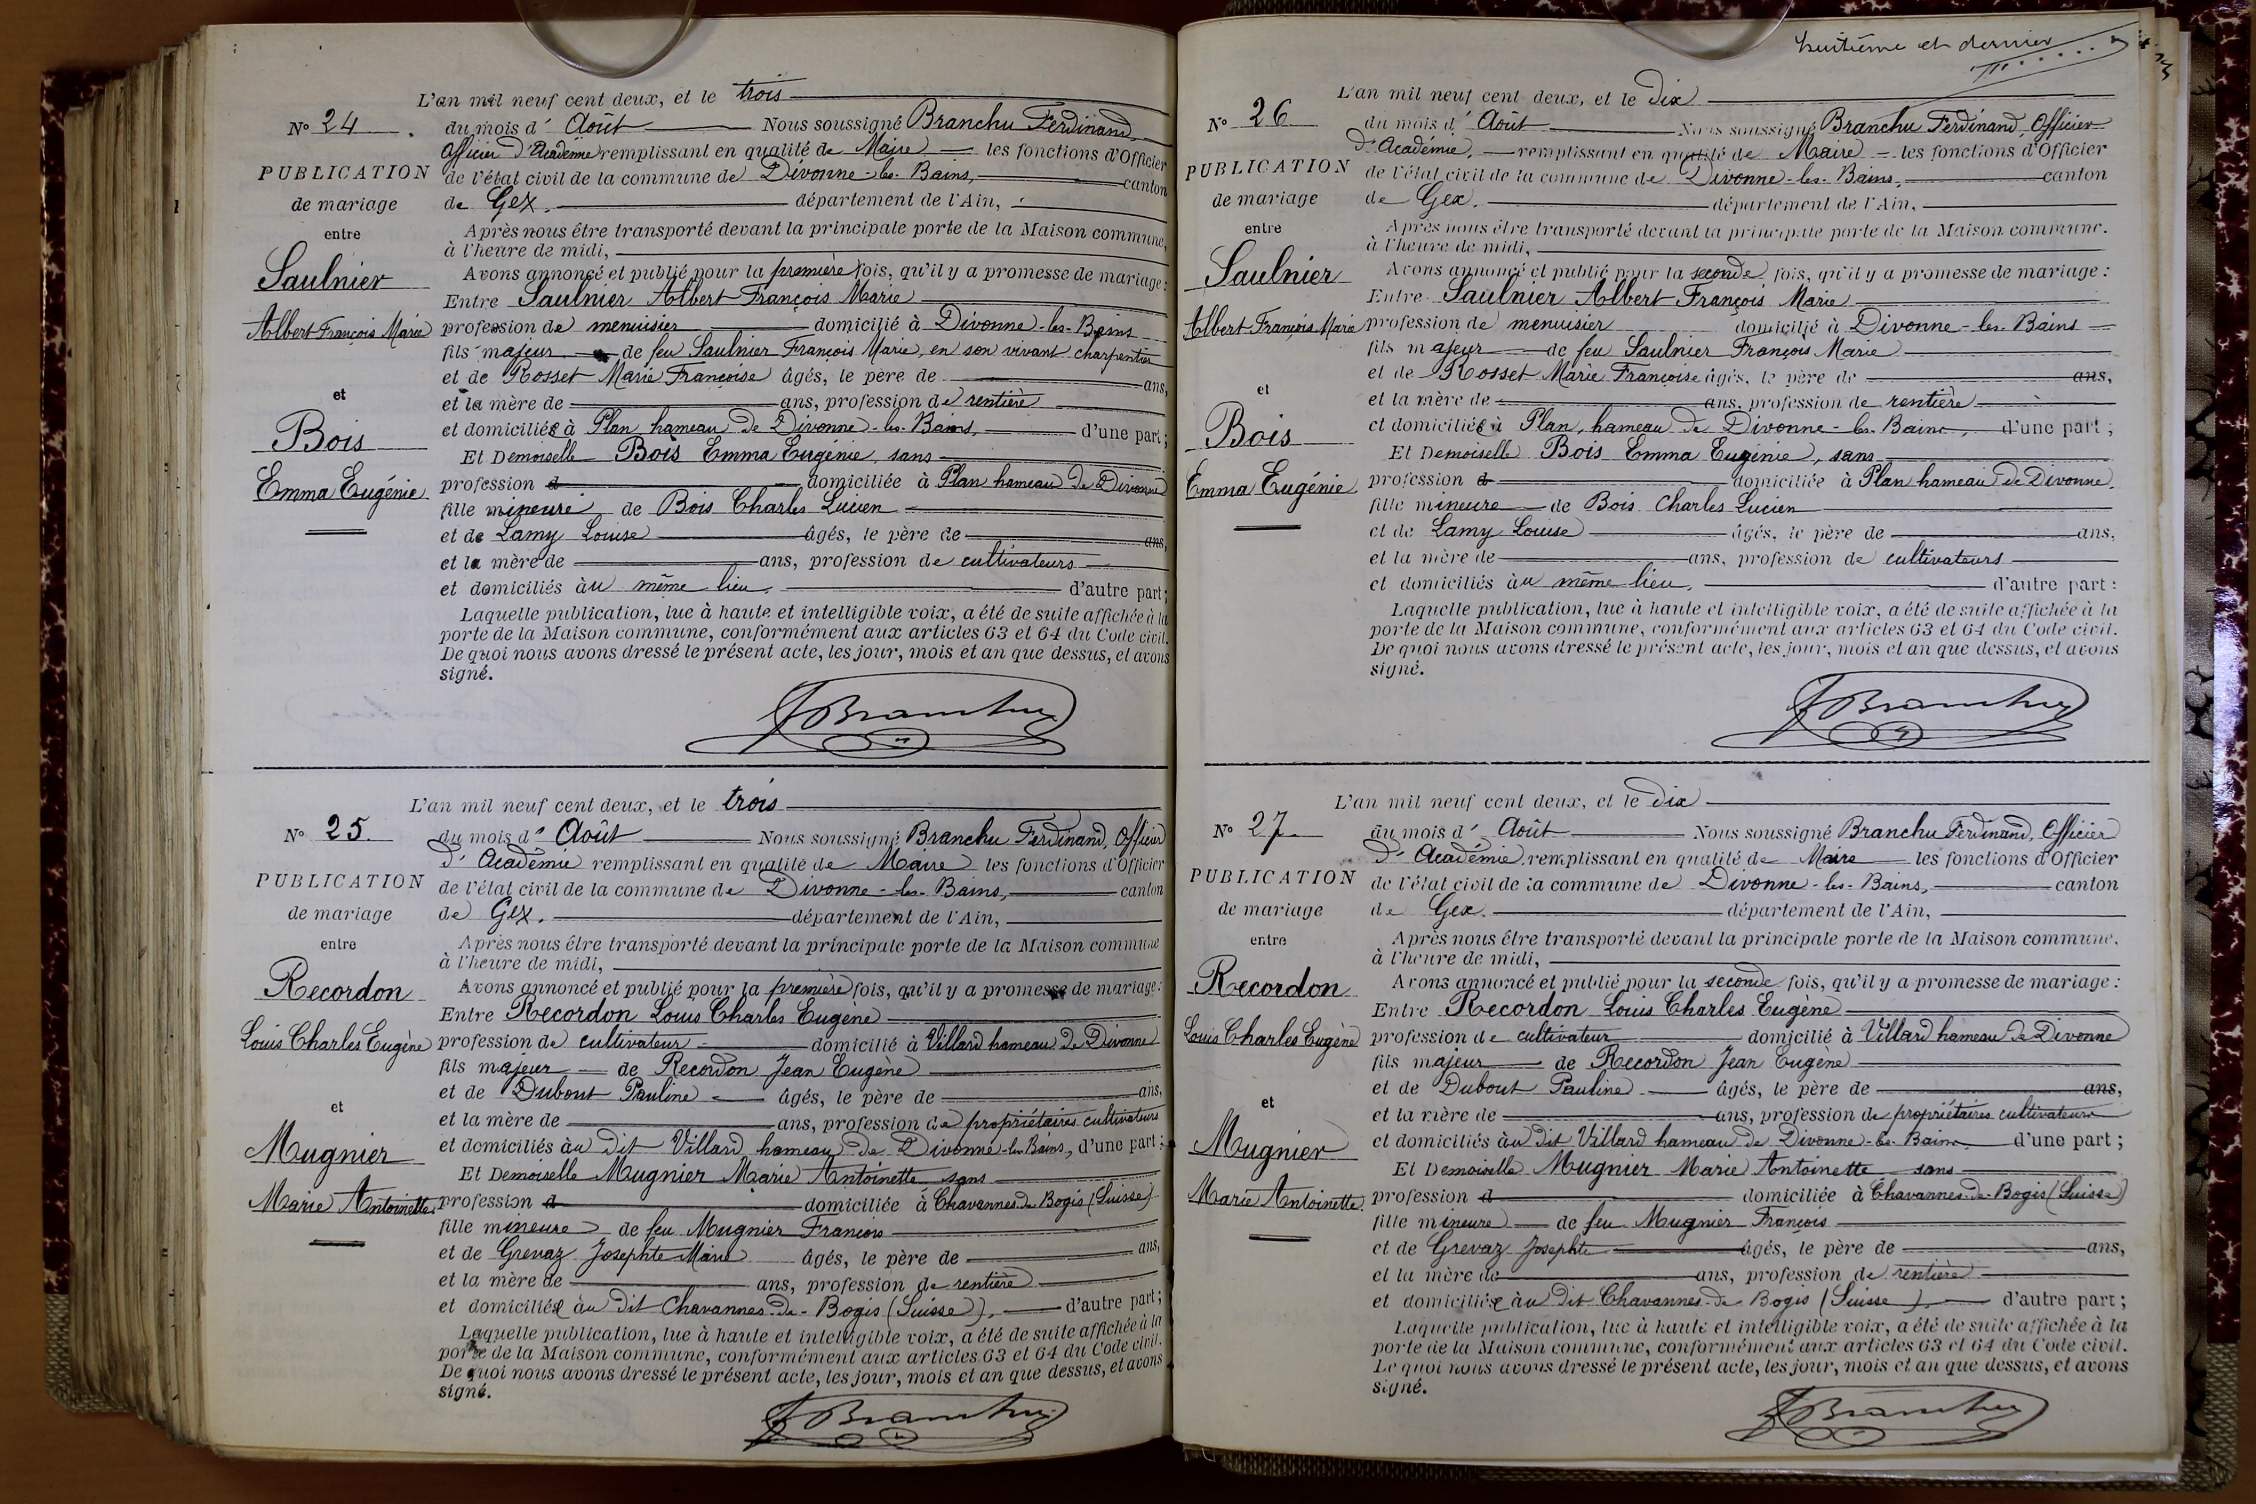 L'an mil neuf cent deux, et le trois
N° 24. du mois d' Août Nous soussigné Branchu Ferdinand,
Officier d'Académie remplissant en qualité de Maire les fonctions d'Officier
PUBLICATION de l'état civil de la commune de Divonne-les-Bains, canton
de mariage de Gex. département de l'Ain,
entre Après nous être transporté devant la principale porte de la Maison commune,
à l'heure de midi,
Saulnier Avons annoncé et publié pour la première fois, qu'il y a promesse de mariage:
Entre Saulnier Albert François Marie
Albert François Marie profession de menuisier domicilié à Divonne-les-Bains
fils majeur de feu Saulnier François Marie, en son vivant charpentier
et de Rosset Marie Françoise âgés, le père de ans,
et et la mère de ans, profession de rentière
Bois et domiciliée à Plan hameau de Divonne-les-Bains, d'une part;
Et Demoiselle Bois Emma Eugénie, sans
Emma Eugénie profession d domiciliée à Plan hameau de Divonne
fille mineure de Bois Charles Lucien
et de Lamy Louise âgés, le père de ans,
et la mère de ans, profession de cultivateurs
et domiciliés au même lieu, d'autre part;
Laquelle publication, lue à haute et intelligible voix, a été de suite affichée à la
porte de la Maison commune, conformément aux articles 63 et 64 du Code civil.
De quoi nous avons dressé le présent acte, les jour, mois et an que dessus, et avons
signé.
F Branchu
L'an mil neuf cent deux, et le trois
N° 25. du mois d' Août Nous soussigné Branchu Ferdinand, Officier
d'Académie remplissant en qualité de Maire les fonctions d'Officier
PUBLICATION de l'état civil de la commune de Divonne-les-Bains, canton
de mariage de Gex. département de l'Ain,
entre Après nous être transporté devant la principale porte de la Maison commune
à l'heure de midi,
Recordon Avons annoncé et publié pour la première fois, qu'il y a promesse de mariage:
Entre Recordon Louis Charles Eugène
Louis Charles Eugène profession de cultivateur domicilié à Villard hameau de Divonne
fils majeur de Recordon Jean Eugène
et de Dubout Pauline âgés, le père de ans,
et et la mère de ans, profession de propriétaires cultivateurs
Mugnier et domiciliés au dit Villard hameau de Divonne-les-Bains, d'une part;
Et Demoiselle Mugnier Marie Antoinette sans
Marie Antoinette profession d domiciliée à Chavannes-de-Bogis (Suisse)
fille mineure de feu Mugnier François
et de Grevaz Josephte Marie âgés, le père de ans,
et la mère de ans, profession de rentière
et domiciliée au dit Chavannes-de-Bogis (Suisse), d'autre part;
Laquelle publication, lue à haute et intelligible voix, a été de suite affichée à la
porte de la Maison commune, conformément aux articles 63 et 64 du Code civil.
De quoi nous avons dressé le présent acte, les jour, mois et an que dessus, et avons
signé.
F Branchu
huitième et dernier
L'an mil neuf cent deux, et le dix
N° 26 du mois d' Août Nous soussigné Branchu Ferdinand, Officier
d'Académie, remplissant en qualité de Maire les fonctions d'Officier
PUBLICATION de l'état civil de la commune de Divonne-les-Bains, canton
de mariage de Gex. département de l'Ain,
entre Après nous être transporté devant la principale porte de la Maison commune.
à l'heure de midi,
Saulnier Avons annoncé et publié pour la seconde fois, qu'il y a promesse de mariage:
Entre Saulnier Albert François Marie
Albert François Marie profession de menuisier domicilié à Divonne-les-Bains
fils majeur de feu Saulnier François Marie
et de Rosset Marie Françoise âgés, le père de ans,
et et la mère de ans, profession de rentière
Bois et domiciliée à Plan, hameau de Divonne-les-Bains, d'une part;
Et Demoiselle Bois Emma Eugénie, sans
Emma Eugénie profession d domiciliée à Plan hameau de Divonne,
fille mineure de Bois Charles Lucien
et de Lamy Louise âgés, le père de ans,
et la mère de ans, profession de cultivateurs
et domiciliés au même lieu, d'autre part:
Laquelle publication, lue à haute et intelligible voix, a été de suite affichée à la
porte de la Maison commune, conformément aux articles 63 et 64 du Code civil.
De quoi nous avons dressé le présent acte, les jour, mois et an que dessus, et avons
signé.
F Branchu
L'an mil neuf cent deux, et le dix
N° 27 du mois d' Août Nous soussigné Branchu Ferdinand, Officier
d'Académie, remplissant en qualité de Maire les fonctions d'Officier
PUBLICATION de l'état civil de la commune de Divonne-les-Bains, canton
de mariage de Gex. département de l'Ain,
entre Après nous être transporté devant la principale porte de la Maison commune.
à l'heure de midi,
Recordon Avons annoncé et publié pour la seconde fois, qu'il y a promesse de mariage:
Entre Recordon Louis Charles Eugène
Louis Charles Eugène profession de cultivateur domicilié à Villard hameau de Divonne
fils majeur de Recordon Jean Eugène
et de Dubout Pauline âgés, le père de ans,
et et la mère de ans, profession de propriétaires cultivateurs
Mugnier et domiciliés au dit Villard hameau de Divonne-les-Bains d'une part;
Et Demoiselle Mugnier Marie Antoinette sans
Marie Antoinette profession d domiciliée à Chavannes-de-Bogis (Suisse)
fille mineure de feu Mugnier François
et de Grevaz Josephte âgés, le père de ans,
et la mère de ans, profession de rentière
et domiciliée au dit Chavannes-de-Bogis (Suisse), d'autre part;
Laquelle publication, lue à haute et intelligible voix, a été de suite affichée à la
porte de la Maison commune, conformément aux articles 63 et 64 du Code civil.
De quoi nous avons dressé le présent acte, les jour, mois et an que dessus, et avons
signé.
F Branchu